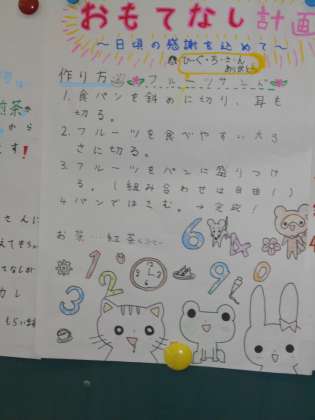 おもてなし計画
～日頃の感謝を込めて～
ひ・ぐ・ろ・さ・ん
作り方 フルーツサンド
1. 食パンを斜めに切り、耳も
切る。
2. フルーツを食べやすい大き
さに切る。
3. フルーツをパンに盛りつけ
る。（組み合わせは自由！）
4 パンではさむ。→完成！
お茶…紅茶
6 4 8
1 2
6 9 0
3
煎茶か
から
す！
さんに